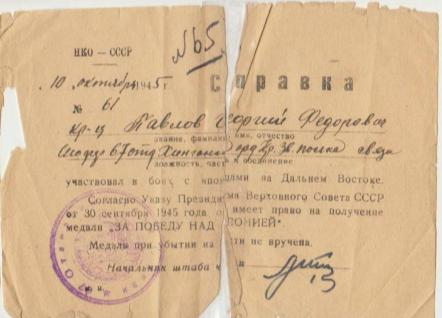 НКО — СССР
№ 65
10 октября 1945 г
Справка
№ 61
кр-ц Павлов Георгий Федорович
звание, фамилия, имя, отчество
Хинганск орд Кр. Зв полка связи
должность, часть и соединение
участвовал в боях с японцами на Дальнем Востоке.
Согласно Указу Президиума Верховного Совета СССР
от 30 сентября 1945 года он имеет право на получение
медали "ЗА ПОБЕДУ НАД ЯПОНИЕЙ"
Медаль при убытии из части не вручена.
Начальник штаба части